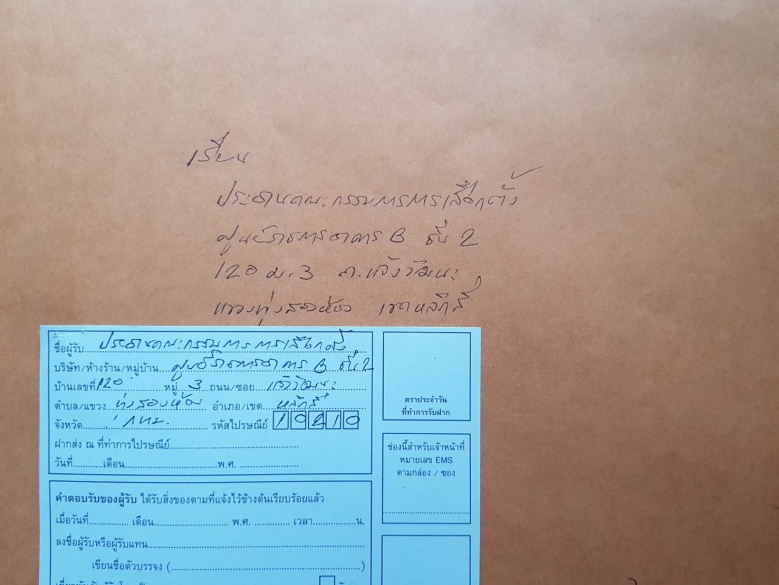 เรียน
ประธานคณะกรรมการการเลือกตั้ง
ศูนย์ราชการอาคาร B ชั้น 2
120 ม.3 ถ.แจ้งวัฒนะ
แขวงทุ่งสองห้อง เขตหลักสี่
ชื่อผู้รับ ประธานคณะกรรมการการเลือกตั้ง
บริษัท/ห้างร้าน/หมู่บ้าน ศูนย์ราชการอาคาร B ชั้น 2
บ้านเลขที่ 120 หมู่ 3 ถนน/ซอย แจ้งวัฒนะ
ตำบล/แขวง ทุ่งสองห้อง อำเภอ/เขต หลักสี่
จังหวัด กทม. รหัสไปรษณีย์ 10210
ฝากส่ง ณ ที่ทำการไปรษณีย์
วันที่ เดือน พ.ศ.
ตราประจำวัน
ที่ทำการรับฝาก
ช่องนี้สำหรับเจ้าหน้าที่
หมายเลข EMS
ตามกล่อง / ซอง
คำตอบรับของผู้รับ ได้รับสิ่งของตามที่แจ้งไว้ข้างต้นเรียบร้อยแล้ว
เมื่อวันที่ เดือน พ.ศ. เวลา น.
ลงชื่อผู้รับหรือผู้รับแทน
เขียนชื่อตัวบรรจง ( )